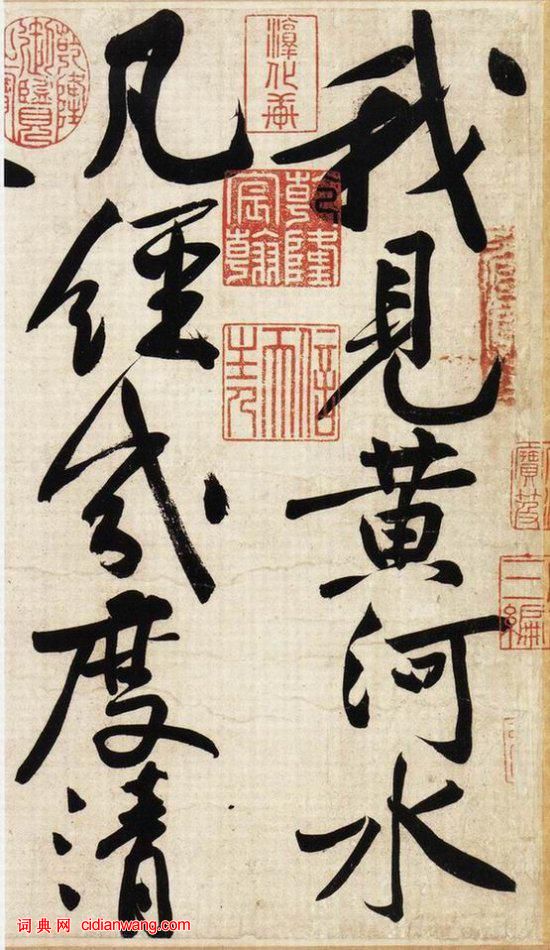 我見黃河水
凡經幾度清
淳化軒
乾隆宸翰
信天主人
乾隆御覽之寶
寶笈
三編
词典网 cidianwang.com